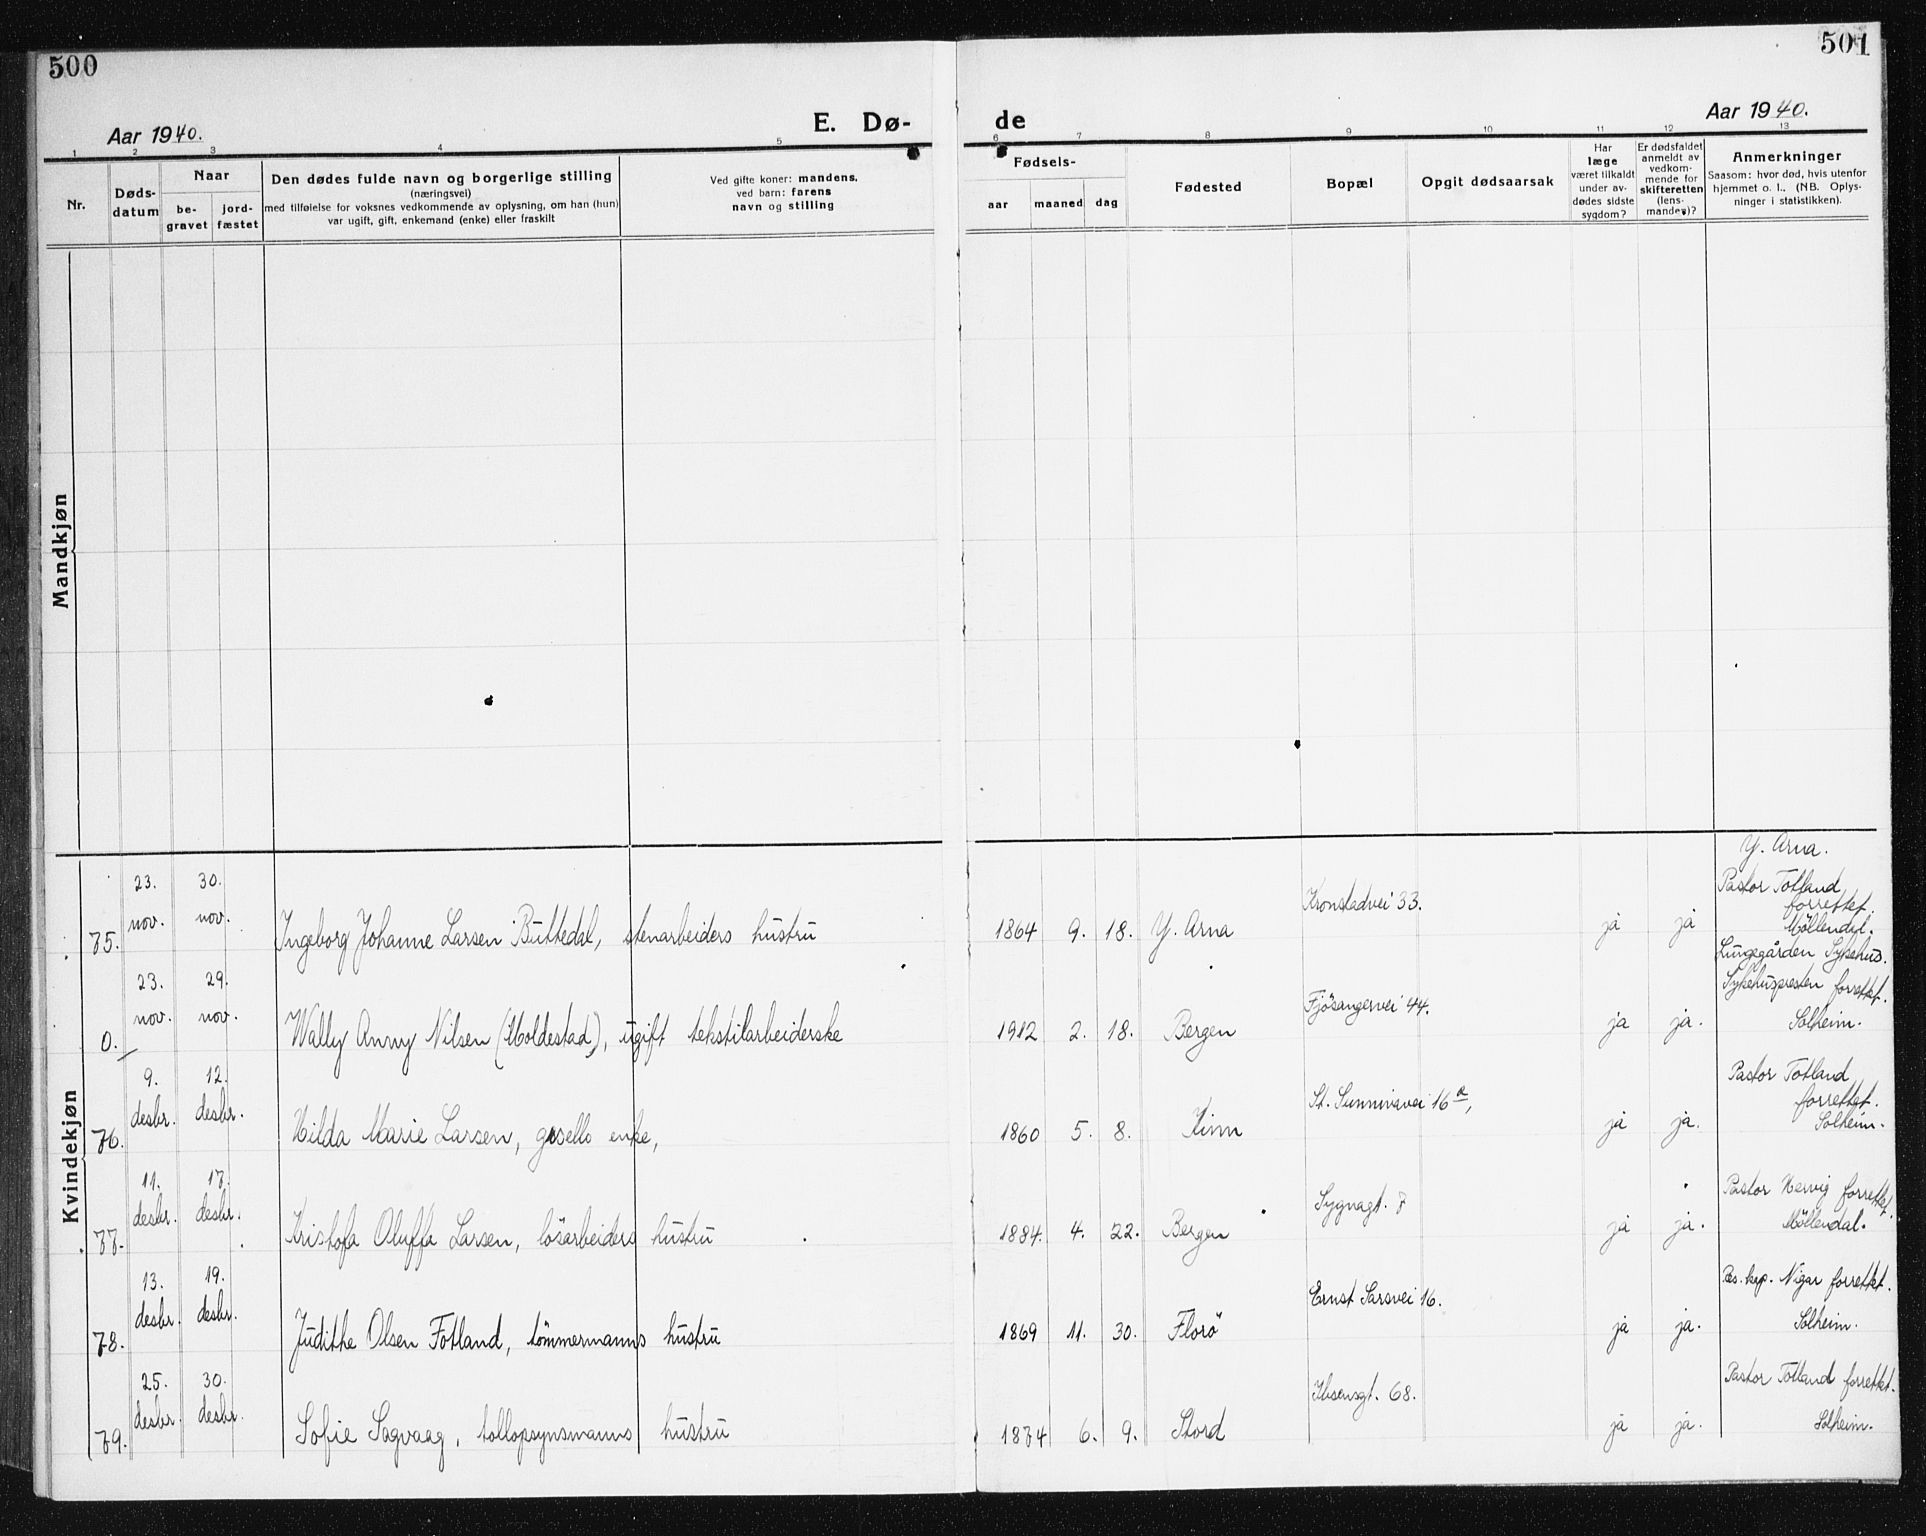 500
501
Aar 1940.
E. Dø-
de
Aar 1940.
1 2 3 4 5 6 7 8 9 10 11 12 13
Nr.
Døds-
datum
Naar
be-
gravet
jord-
fæstet
Den dødes fulde navn og borgerlige stilling
(næringsvei)
med tilføielse for voksnes vedkommende av oplysning, om han (hun)
var ugift, gift, enkemand (enke) eller fraskilt
Ved gifte koner: mandens,
ved barn: farens
navn og stilling
Fødsels-
aar
maaned
dag
Fødested
Bopæl
Opgit dødsaarsak
Har
læge
været tilkaldt
under av-
dødes sidste
sygdom?
Er dødsfaldet
anmeldt av
vedkom-
mende for
skifteretten
(lens-
manden)?
Anmerkninger
Saasom: hvor død, hvis utenfor
hjemmet o. l.. (NB. Oplys-
ninger i statistikken).
Mandkjøn
Kvindekjøn
Y. Arna.
23. 30. Pastor Totland
nov. nov. Kronstadvei 33. forrettet.
75. Ingeborg Johanne Larsen Buttedal, stenarbeiders hustru 1864 9. 18. Y. Arna ja ja Möllendal.
Lungegården Sykehus.
23. 29. Sykehuspresten forrettet.
nov. nov. Fjösangervei 44.
0. Wally Anny Nilsen (Moldestad), ugift tekstilarbeiderske 1912 2. 18. Bergen ja ja. Solheim.
9. 12. Pastor Totland
desbr. desbr. St. Sunnivavei 16 a, forrettet.
76. Hilda Marie Larsen, gsells enke, 1860 5. 8. Kinn ja ja. Solheim.
11. 17. Pastor Hervig forrettet.
desbr. desbr. Sygnagt. 7
77. Kristofa Oluffa Larsen, lösarbeiders hustru 1884. 4. 22. Bergen ja ja. Möllendal.
13. 19. Res. kap. Nigar forrettet.
desbr. desbr. Ernst Sarsvei 16.
78. Judithe Olsen Fotland, tömmermanns hustru 1869 11. 30. Florö ja ja. Solheim.
25. 30. Pastor Totland forrettet.
desbr. desbr. Ibsensgt. 68.
79. Sofie Sagvaag, tollopsynsmanns hustru 1874 6. 9. Stord ja ja. Solheim.